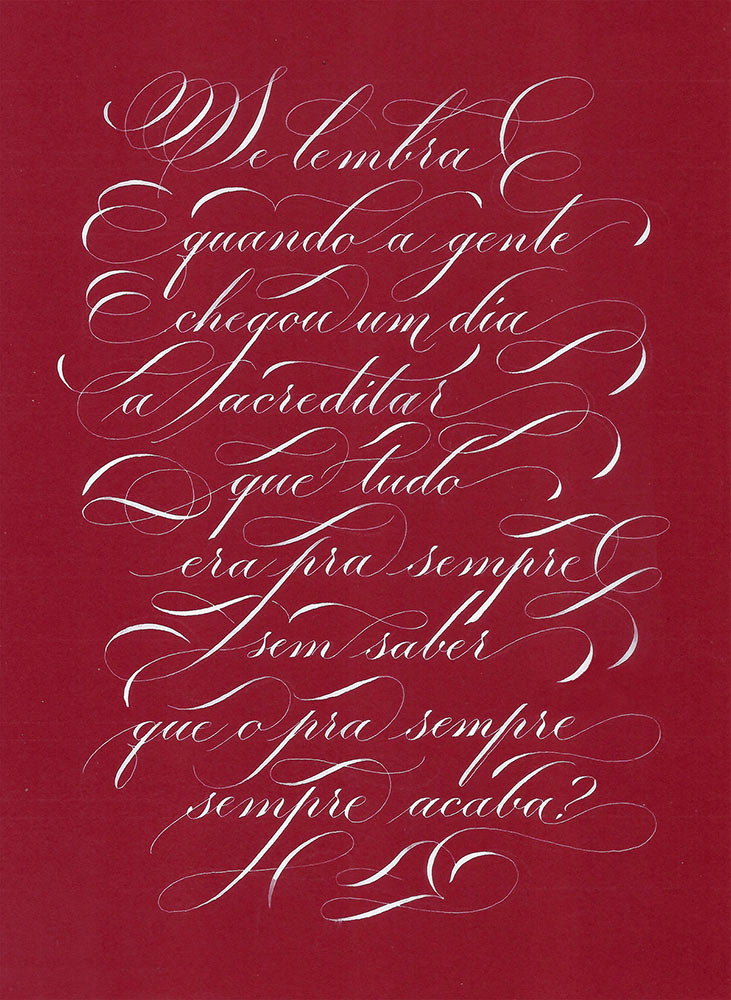 Se lembra
quando a gente
chegou um dia
a acreditar
que tudo
era pra sempre
sem saber
que o pra sempre
sempre acaba?